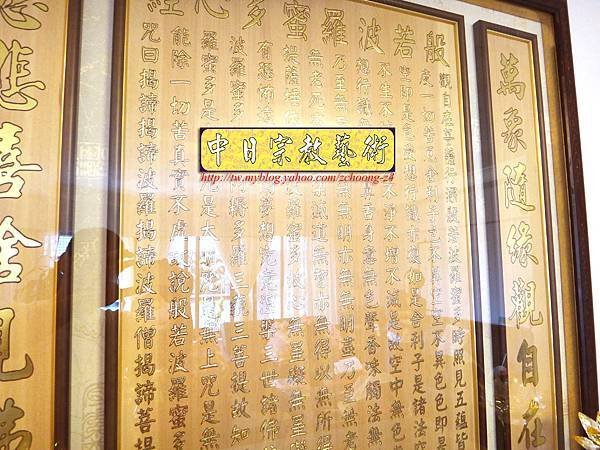 萬眾隨緣觀自在
般若波羅蜜多心經
觀自在菩薩行深般若波羅蜜多時照見五蘊皆
度一切苦厄舍利子色不異空空不異色色即是
生即是空受想行識亦復如是舍利子是諸法空
不生不
不淨不增不減是故空中無色
想行識
鼻舌身意無色聲香味觸法無
乃至無
無無明亦無無明盡乃至無老
無老死
集滅道無智亦無得以無所得
提薩埵依
波羅蜜多故心無罣礙無罣礙
有恐怖遠
夢想究竟涅槃三世諸佛
波羅蜜多
阿耨多羅三藐三菩提故知
羅蜜多是大
咒是大
咒是無上咒是無
能除一切苦真實不虛故說般若波羅蜜多
咒曰揭諦揭諦波羅揭諦波羅僧揭諦菩提
悲喜舍觀
中日宗教藝術
http://tw.myblog.yahoo.com/zchoong-24